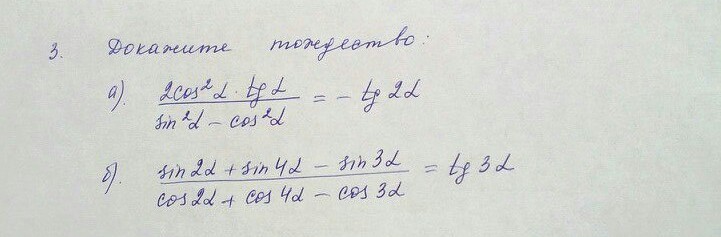 3. Докажите тождество:
а). (2cos²α · tgα) / (sin²α – cos²α) = – tg 2α
б). (sin2α + sin4α – sin3α) / (cos2α + cos4α – cos3α) = tg 3α